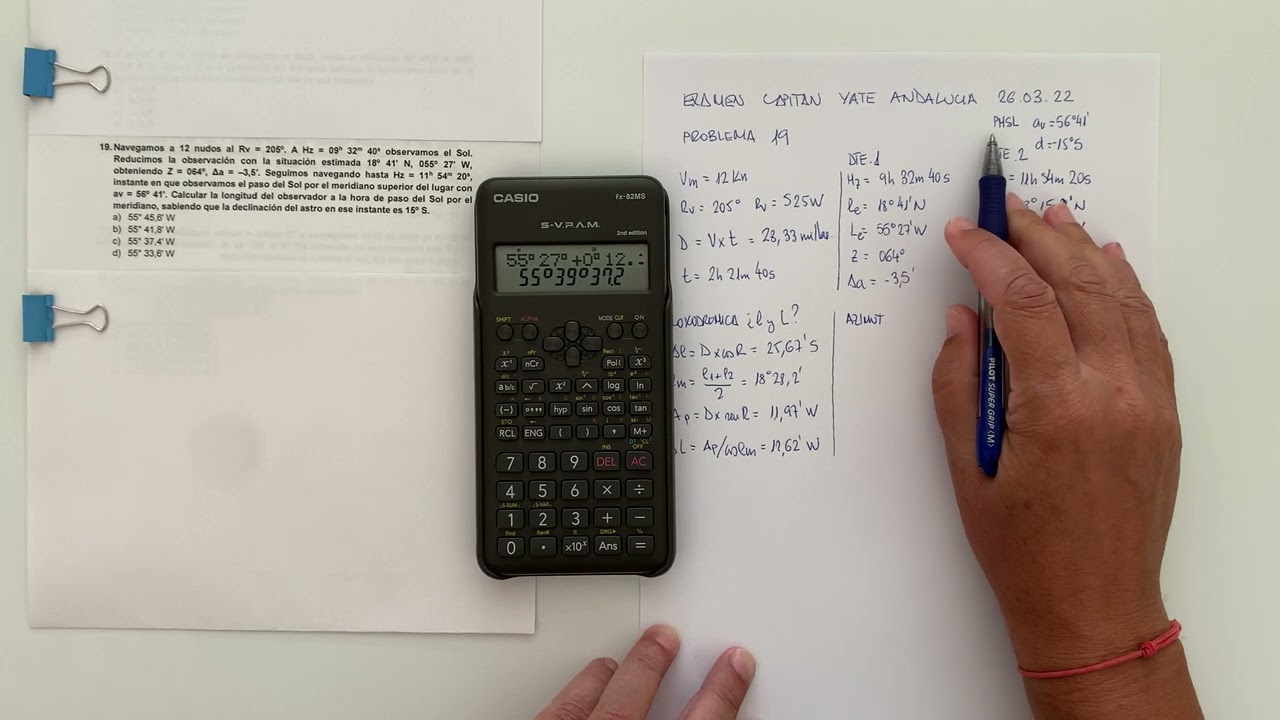 19. Navegamos a 12 nudos al Rv = 205º. A Hz = 09ʰ 32ᵐ 40ˢ observamos el Sol.
Reducimos la observación con la situación estimada 18º 41' N, 055º 27' W,
obteniendo Z = 064º, Δa = –3,5'. Seguimos navegando hasta Hz = 11ʰ 54ᵐ 20ˢ,
instante en que observamos el paso del Sol por el meridiano superior del lugar con
av = 56º 41'. Calcular la longitud del observador a la hora de paso del Sol por el
meridiano, sabiendo que la declinación del astro en ese instante es 15º S.
a) 55° 45,6' W
b) 55° 41,8' W
c) 55° 37,4' W
d) 55° 33,6' W
CASIO fx-82MS
S-V.P.A.M.
2nd edition
55°27°+0°12.
55°39°37.2
SHIFT ALPHA MODE CLR ON
x⁻¹ nCr Pol( x³
a b/c √ x² ^ log ln
(–) °''' hyp sin cos tan
RCL ENG ( ) , M+
7 8 9 DEL AC
4 5 6 × ÷
1 2 3 + −
0 . ×10ˣ Ans =
EXAMEN CAPITAN YATE ANDALUCIA 26.03.22
PROBLEMA 19
PHSL av = 56°41'
d = -15°S
Vm = 12 Kn
Rv = 205° Rv = S25W
D = V x t = 28,33 millas
t = 2h 21m 40s
DTE. 1
Hz = 9h 32m 40s
le = 18°41'N
Le = 55°27'W
Z = 064°
Δa = -3,5'
TE. 2
= 11h 54m 20s
LOXODROMICA ¿l y L?
Δl = D x cos R = 25,67' S
lm = l1+l2/2 = 18°28,2'
Ap = D x sen R = 11,97' W
L = Ap/cos lm = 12,62' W
AZIMUT
PILOT SUPER GRIP (M)